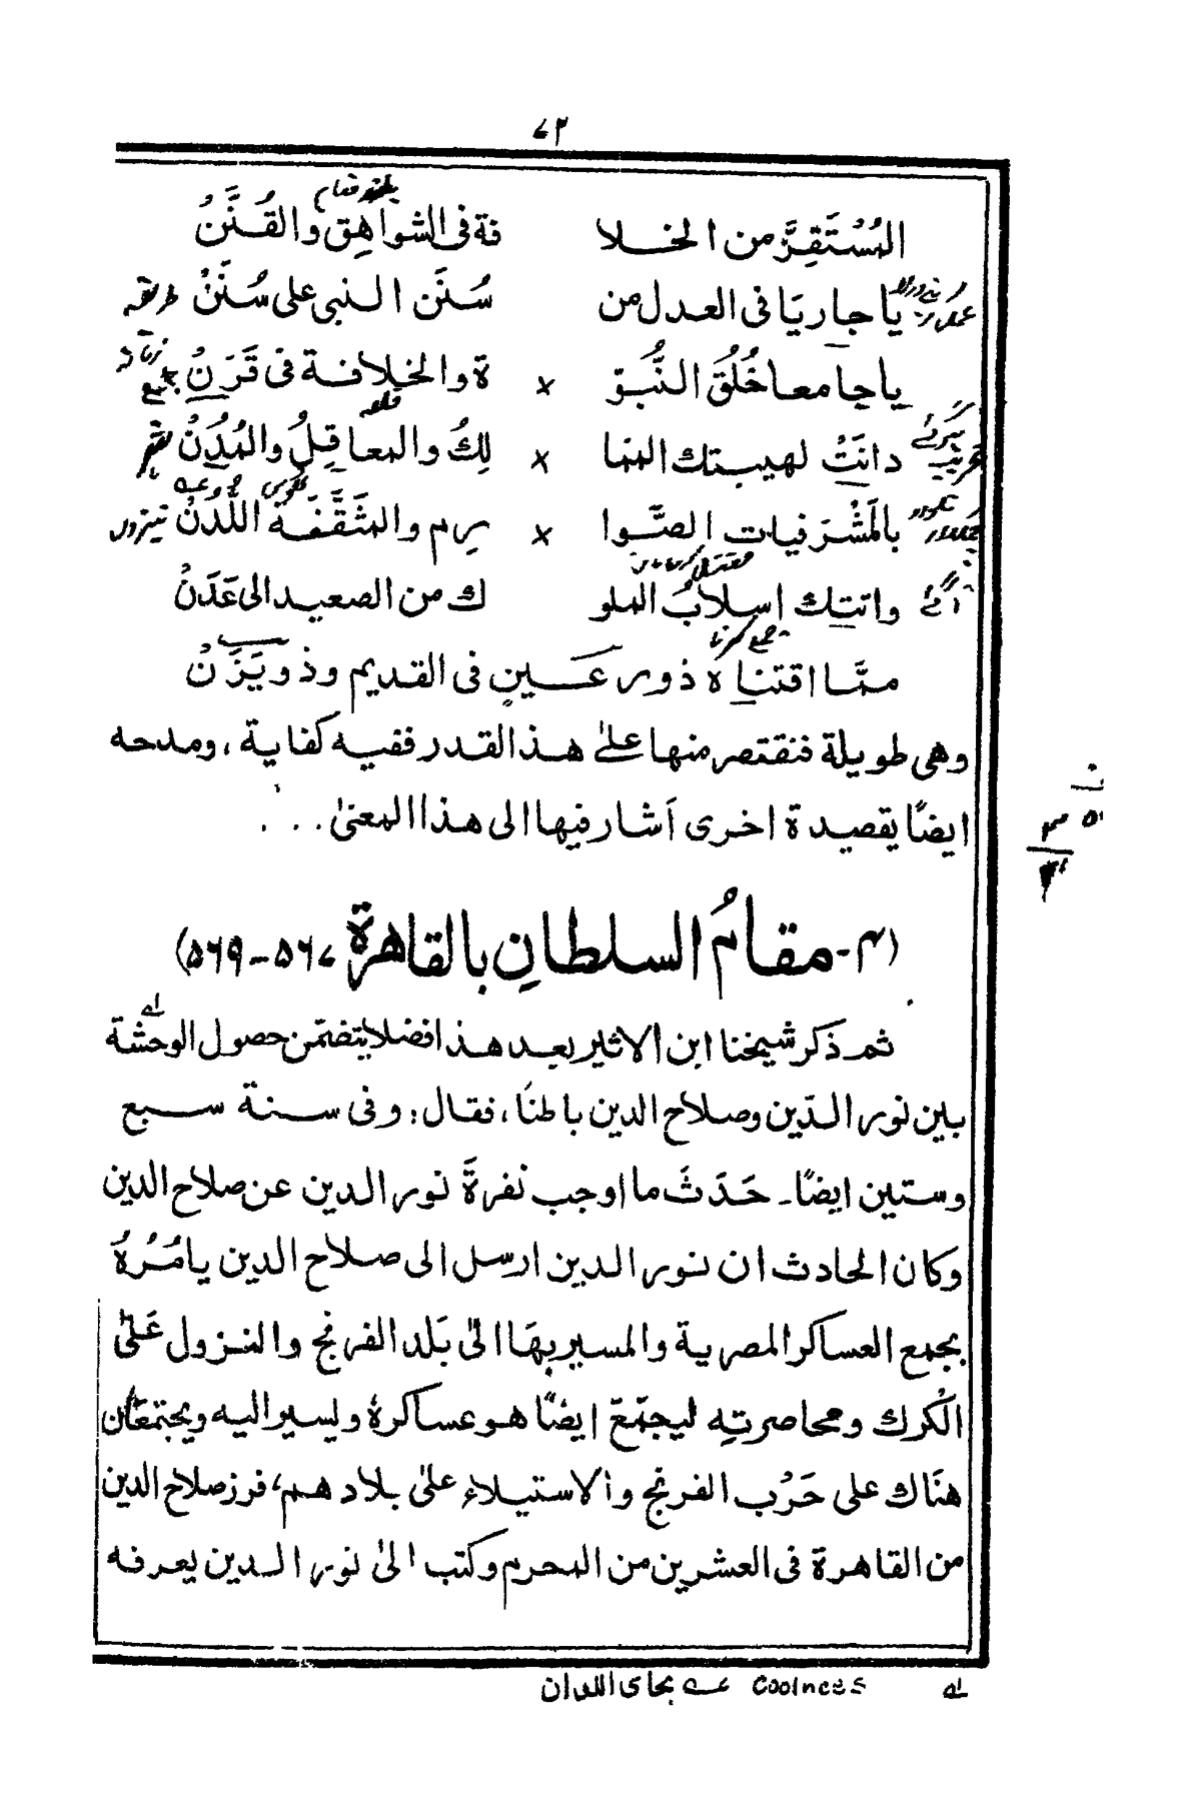 ٧٢
المُسْتَقِرَّ من الخلا فة فى الشواهِق والقُنَّنُ
يا جاريَا فى العدل من سُنَن النبى على سُنَنُ
يا جامعا خُلُقَ النُّبوَّ × ة والخلافة فى قَرَنُ
دانَتْ لهيبتك المما × لِكُ والمعاقِلُ والمُدَنُ
بالمَشْرَفيات الصَّوا × رِم والمثَقَّفَة اللُّدَنُ
واتتك اسلابُ الملو ك من الصعيد الى عَدَنُ
ممَّا اقتناه ذورعَين فى القديم وذويَزَنُ
وهى طويلة فنقتصر منها علىٰ هذا القدر ففيه كفاية، ومدحه
ايضًا يقصيدة اخرى اَشار فيها الى هذا المعنىٰ . . .
(٣- مقامُ السلطانِ بالقاهرة ٥٦٧-٥٦٩)
ثم ذكر شيخنا ابن الاثير بعد هذا فضلا يتضمّن حصول الوحشة
بين نور الدّين وصلاح الدين باطنًا، فقال: وفى سنة سبع
وستين ايضًا۔ حَدَثَ ما اوجب نفرةَ نور الدين عن صلاح الدين
وكان الحادث ان نور الدين ارسل الى صلاح الدين يامُرُهُ
بجمع العساكر المصرية والمسير بهَا الىٰ بَلَد الفرنج والنزول عَلىٰ
الْكرك ومحاصرته ليجمّعَ ايضًا هو عساكرهُ وليسير اليه ويجتمعَان
هنَاك على حَرْب الفرنج والاستيلاء علىٰ بلادهم، فرز صلاح الدين
من القاهرة فى العشرين من المحرم وكتب الىٰ نور الدين يعرفه
لے Coolness عـه بحاى اللدان